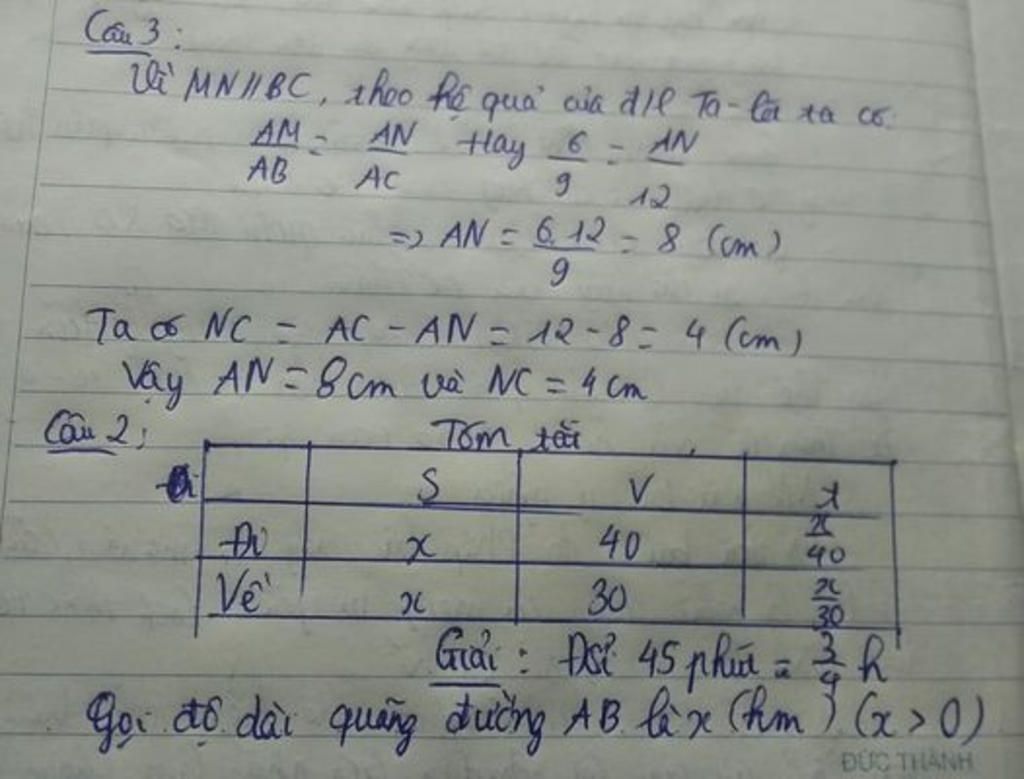 Câu 3:
Vì MN//BC, theo hệ quả của đ/l Ta-lét ta có:
AM/AB = AN/AC Hay 6/9 = AN/12
=> AN = 6.12/9 = 8 (cm)
Ta có NC = AC - AN = 12 - 8 = 4 (cm)
Vậy AN = 8cm và NC = 4cm
Câu 2: Tóm tắt
S V t
Đi x 40 x/40
Về x 30 x/30
Giải: Đổi 45 phút = 3/4 h
Gọi độ dài quãng đường AB là x (km) (x > 0)
ĐỨC THÀNH